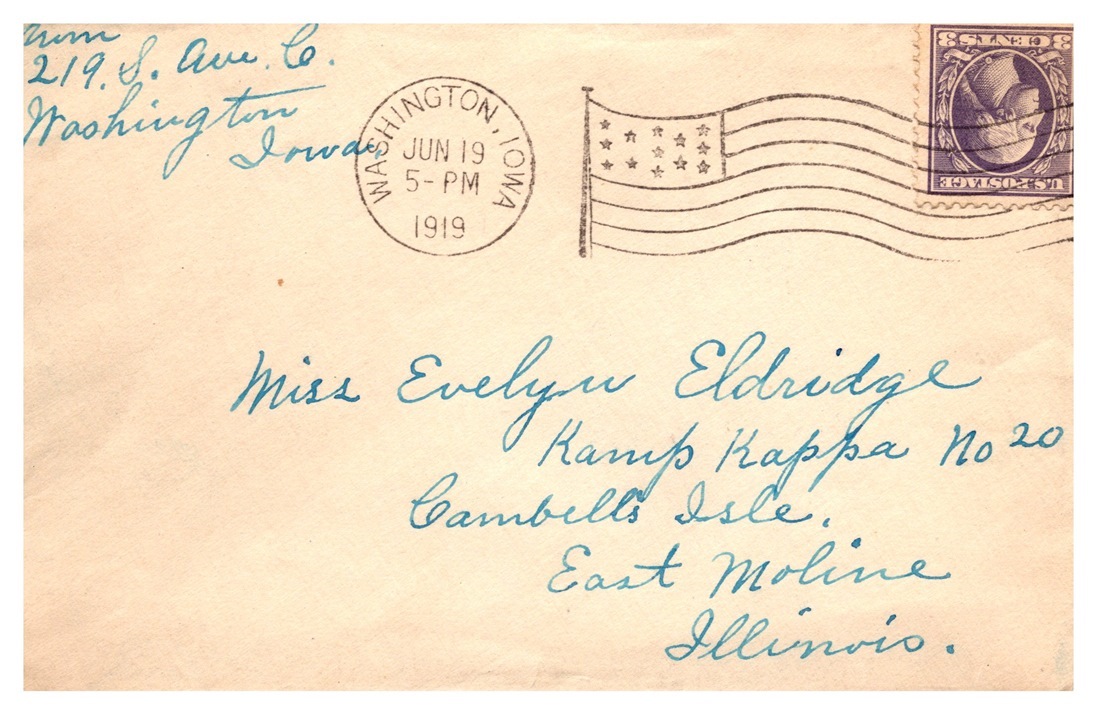 from
219. S. Ave. C.
Washington
Iowa.
WASHINGTON, IOWA
JUN 19
5- PM
1919
3 CENTS 3
U.S. POSTAGE
Miss Evelyn Eldridge
Kamp Kappa No 20
Cambells Isle.
East Moline
Illinois.